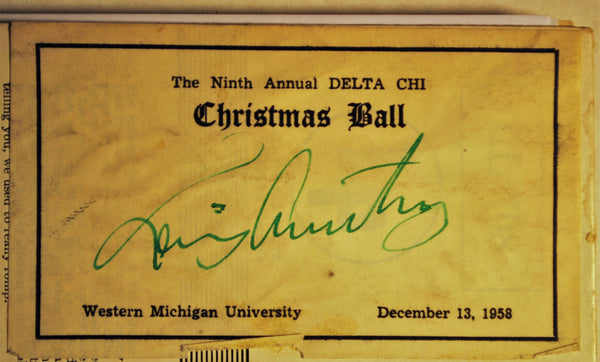 The Ninth Annual DELTA CHI
Christmas Ball
Louis Armstrong
Western Michigan University
December 13, 1958
telling you, we used to really romp.